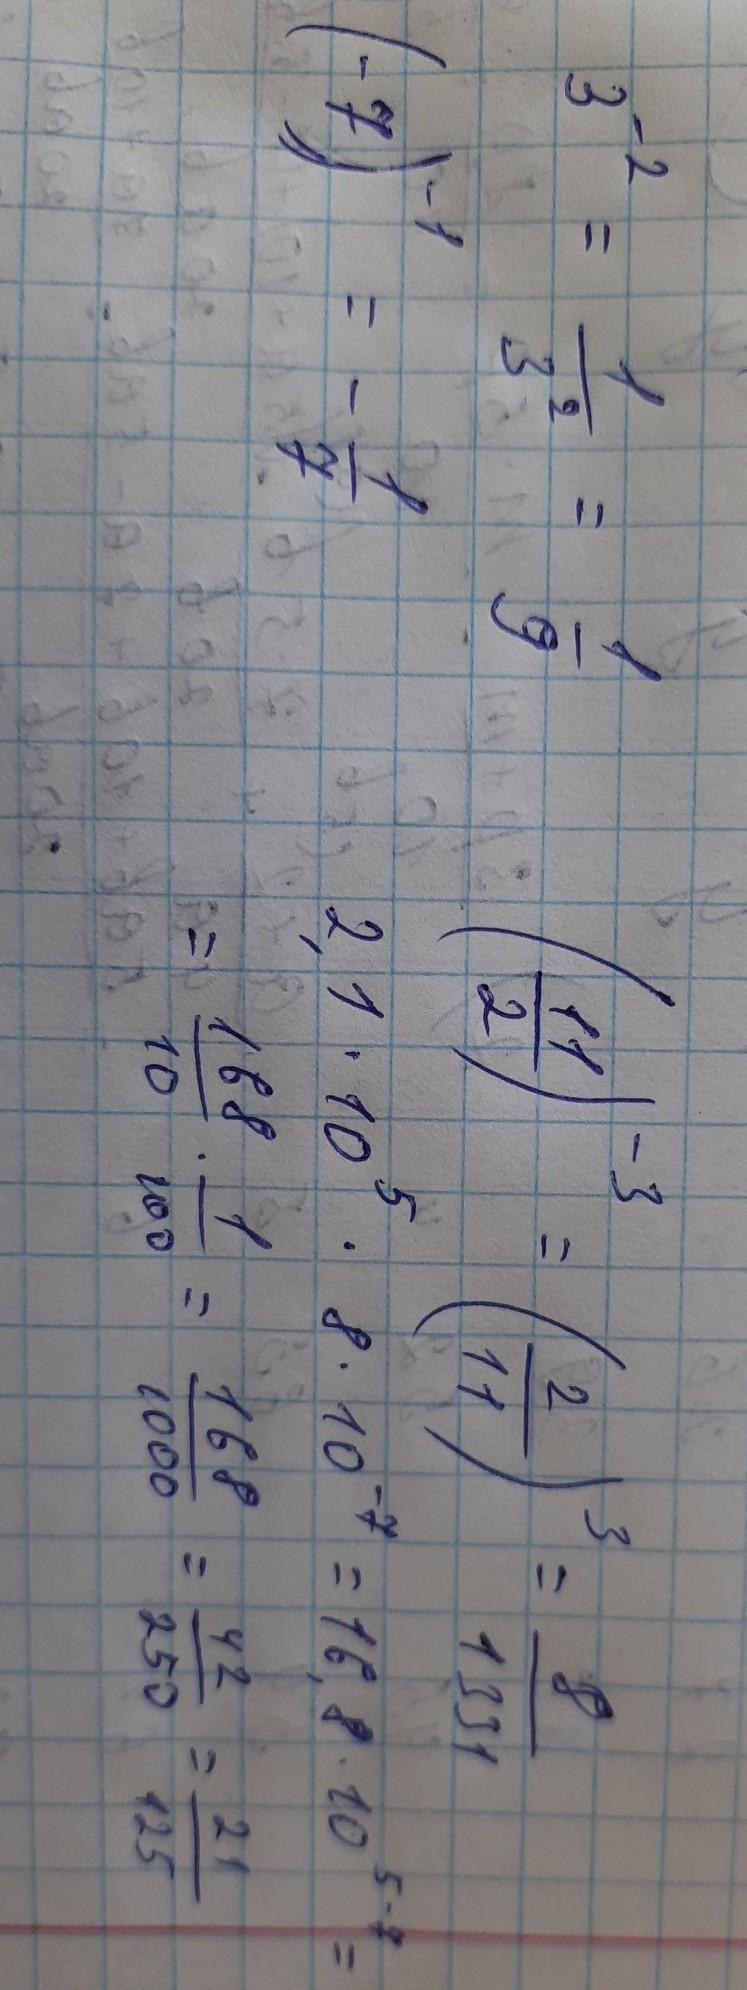 3^-2 = 1/3^2 = 1/9
(-7)^-1 = - 1/7
(11/2)^-3 = (2/11)^3 = 8/1331
2,1 · 10^5 · 8 · 10^-7 = 16,8 · 10^5-7 =
= 168/10 · 1/100 = 168/1000 = 42/250 = 21/125